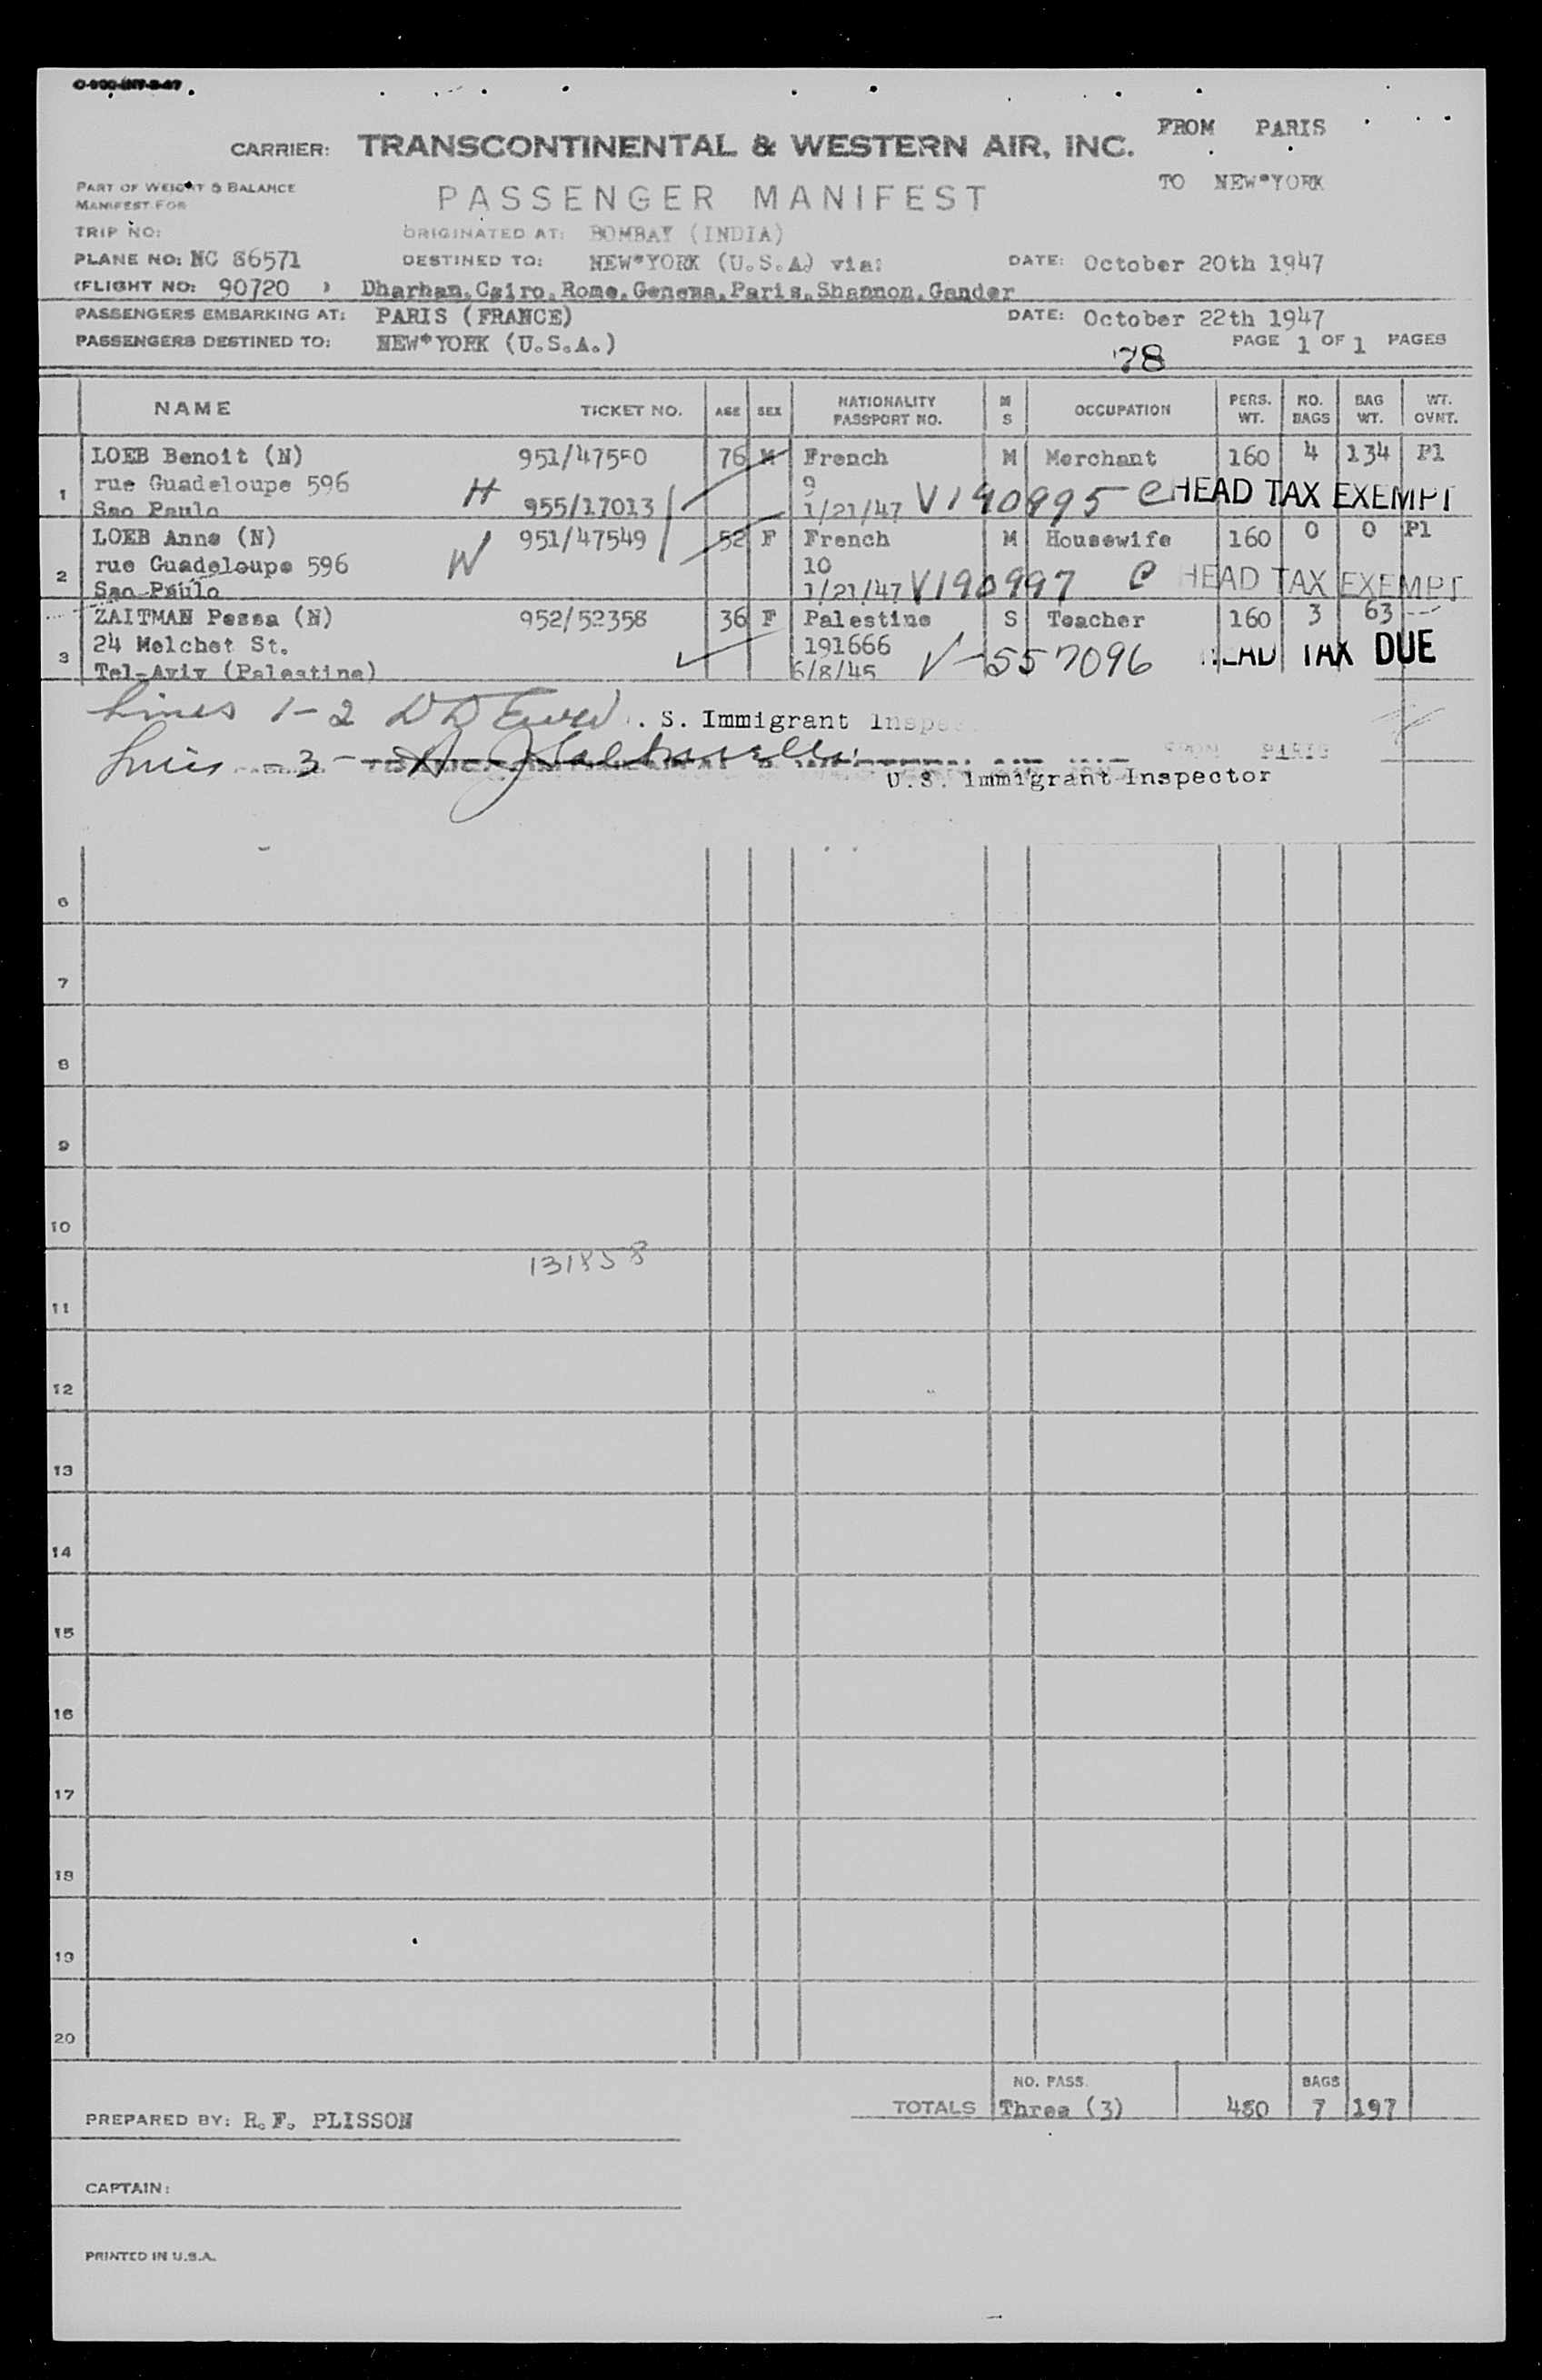 C-900-INT-8-47
FROM PARIS
CARRIER: TRANSCONTINENTAL & WESTERN AIR, INC.
TO NEW*YORK
PART OF WEIGHT & BALANCE
MANIFEST FOR
PASSENGER MANIFEST
TRIP NO:
ORIGINATED AT: BOMBAY (INDIA)
PLANE NO: NC 86571 DESTINED TO: NEW*YORK (U.S.A) via: DATE: October 20th 1947
(FLIGHT NO: 90720 ) Dharhan,Cairo,Rome,Geneva,Paris,Shannon,Gander
PASSENGERS EMBARKING AT: PARIS (FRANCE) DATE: October 22th 1947
PASSENGERS DESTINED TO: NEW*YORK (U.S.A.) PAGE 1 OF 1 PAGES
78
NAME TICKET NO. AGE SEX NATIONALITY PASSPORT NO. M S OCCUPATION PERS. WT. NO. BAGS BAG WT. WT. OVNT.
LOEB Benoit (N) 951/47550 76 M French M Merchant 160 4 134 Pl
rue Guadeloupe 596 H 9
1 Sao Paulo 955/17013 1/21/47 V190995 C HEAD TAX EXEMPT
LOEB Anne (N) 951/47549 52 F French M Housewife 160 0 0 Pl
rue Guadeloupe 596 W 10
2 Sao Paulo 1/21/47 V190997 C HEAD TAX EXEMPT
ZAITMAN Pessa (N) 952/52358 36 F Palestine S Teacher 160 3 63
24 Melchet St. 191666
3 Tel-Aviv (Palestine) 6/8/45 V-557096 HEAD TAX DUE
Lines 1-2 . S. Immigrant Inspe
Lines - 3 -
FROM PARIS
U.S. Immigrant Inspector
6
7
8
9
10
131858
11
12
13
14
15
16
17
18
19
20
NO. PASS. BAGS
TOTALS Three (3) 480 7 197
PREPARED BY: R.F. PLISSON
CAPTAIN:
PRINTED IN U.S.A.